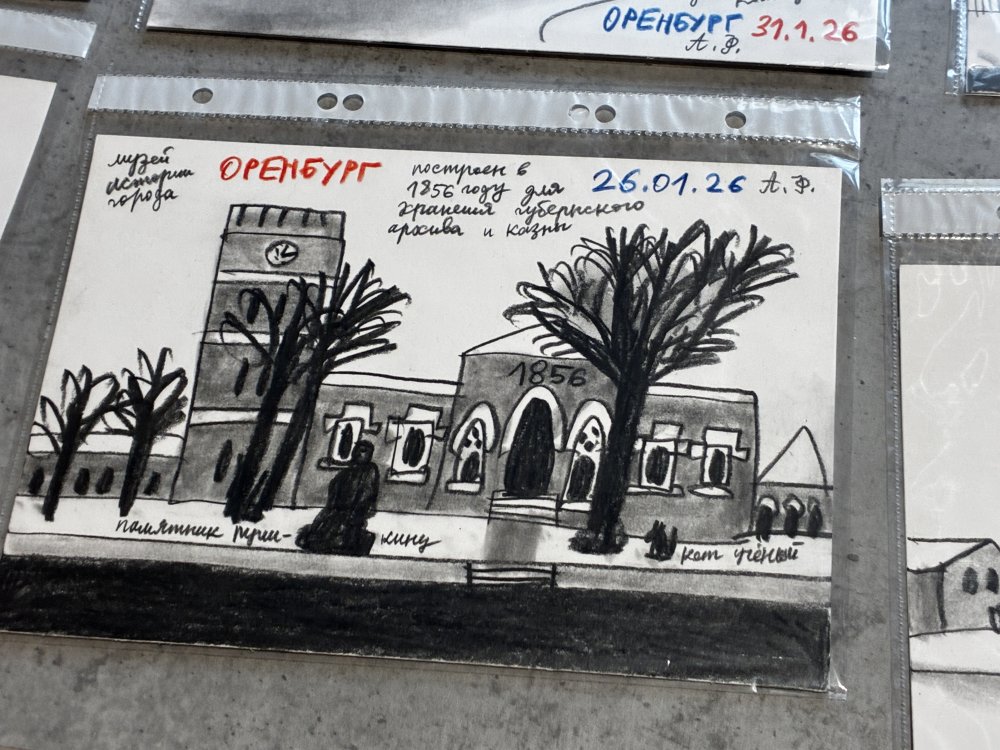 ОРЕНБУРГ 31.1.26
А.Ф.
музей
истории
города
ОРЕНБУРГ
построен в
1856 году для
хранения губернского
архива и казны
26.01.26 А.Ф.
1856
памятник Пуш-кину
кот учёный